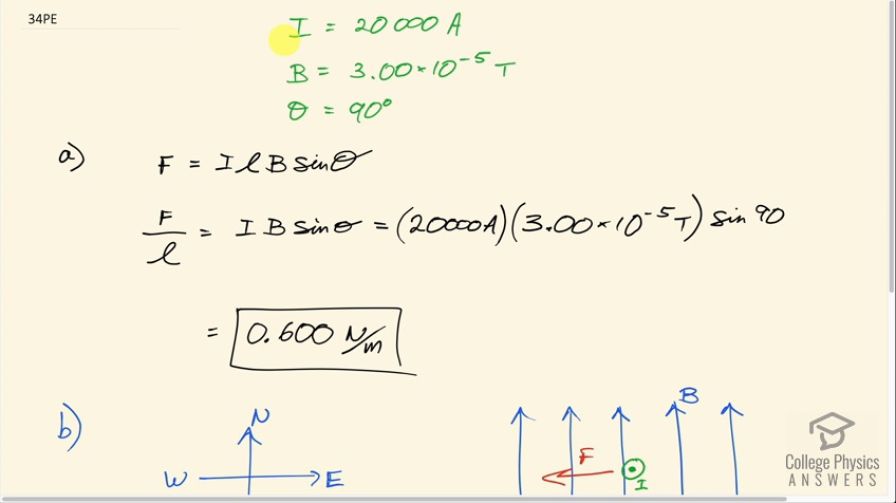 34PE
I = 20000 A
B = 3.00×10⁻⁵ T
θ = 90°
a)
F = I ℓ B sinθ
F/ℓ = I B sinθ = (20000A)(3.00×10⁻⁵ T) sin 90
= 0.600 N/m
b)
N
B
W E
F
I
College Physics
ANSWERS